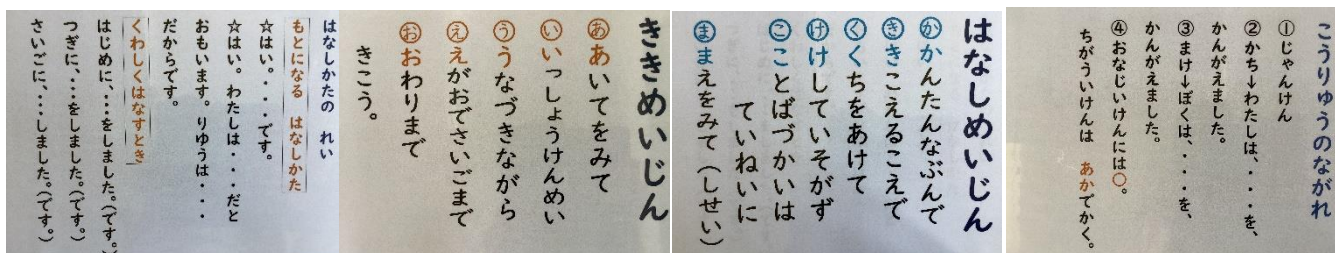 こうりゅうのながれ
①じゃんけん
②かち→わたしは、・・・を、
かんがえました。
③まけ→ぼくは、・・・を、
かんがえました。
④おなじいけんには○。
ちがういけんは あかでかく。
はなしめいじん
かかんたんなぶんで
ききこえるこえで
くくちをあけて
けけしていそがず
ここことばづかいは
ていねいに
ままえをみて(しせい)
ききめいじん
ああいてをみて
いいっしょうけんめい
ううなづきながら
ええがおでさいごまで
おおわりまで
きこう。
はなしかたの れい
もとになる はなしかた
☆はい。・・・です。
☆はい。わたしは・・・だと
おもいます。りゆうは・・・
だからです。
くわしくはなすとき
はじめに、・・・をしました。(です。)
つぎに、・・・をしました。(です。)
さいごに、・・・しました。(です。)